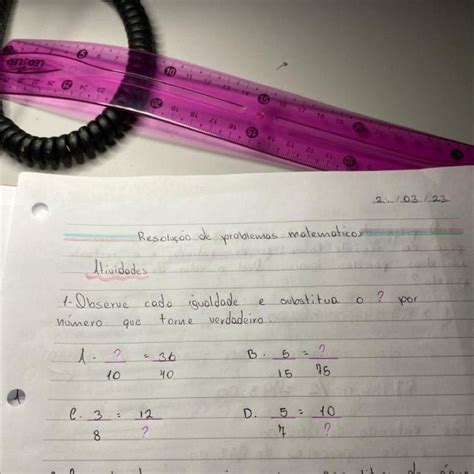 2 /03/23
Resolução de problemas matematicos
Atividades
1. Observe cada igualdade e substitua o ? por
número que torne verdadeiro.
A. ?/10 = 36/40 B. 5/15 = ?/75
C. 3/8 = 12/? D. 5/7 = 10/?